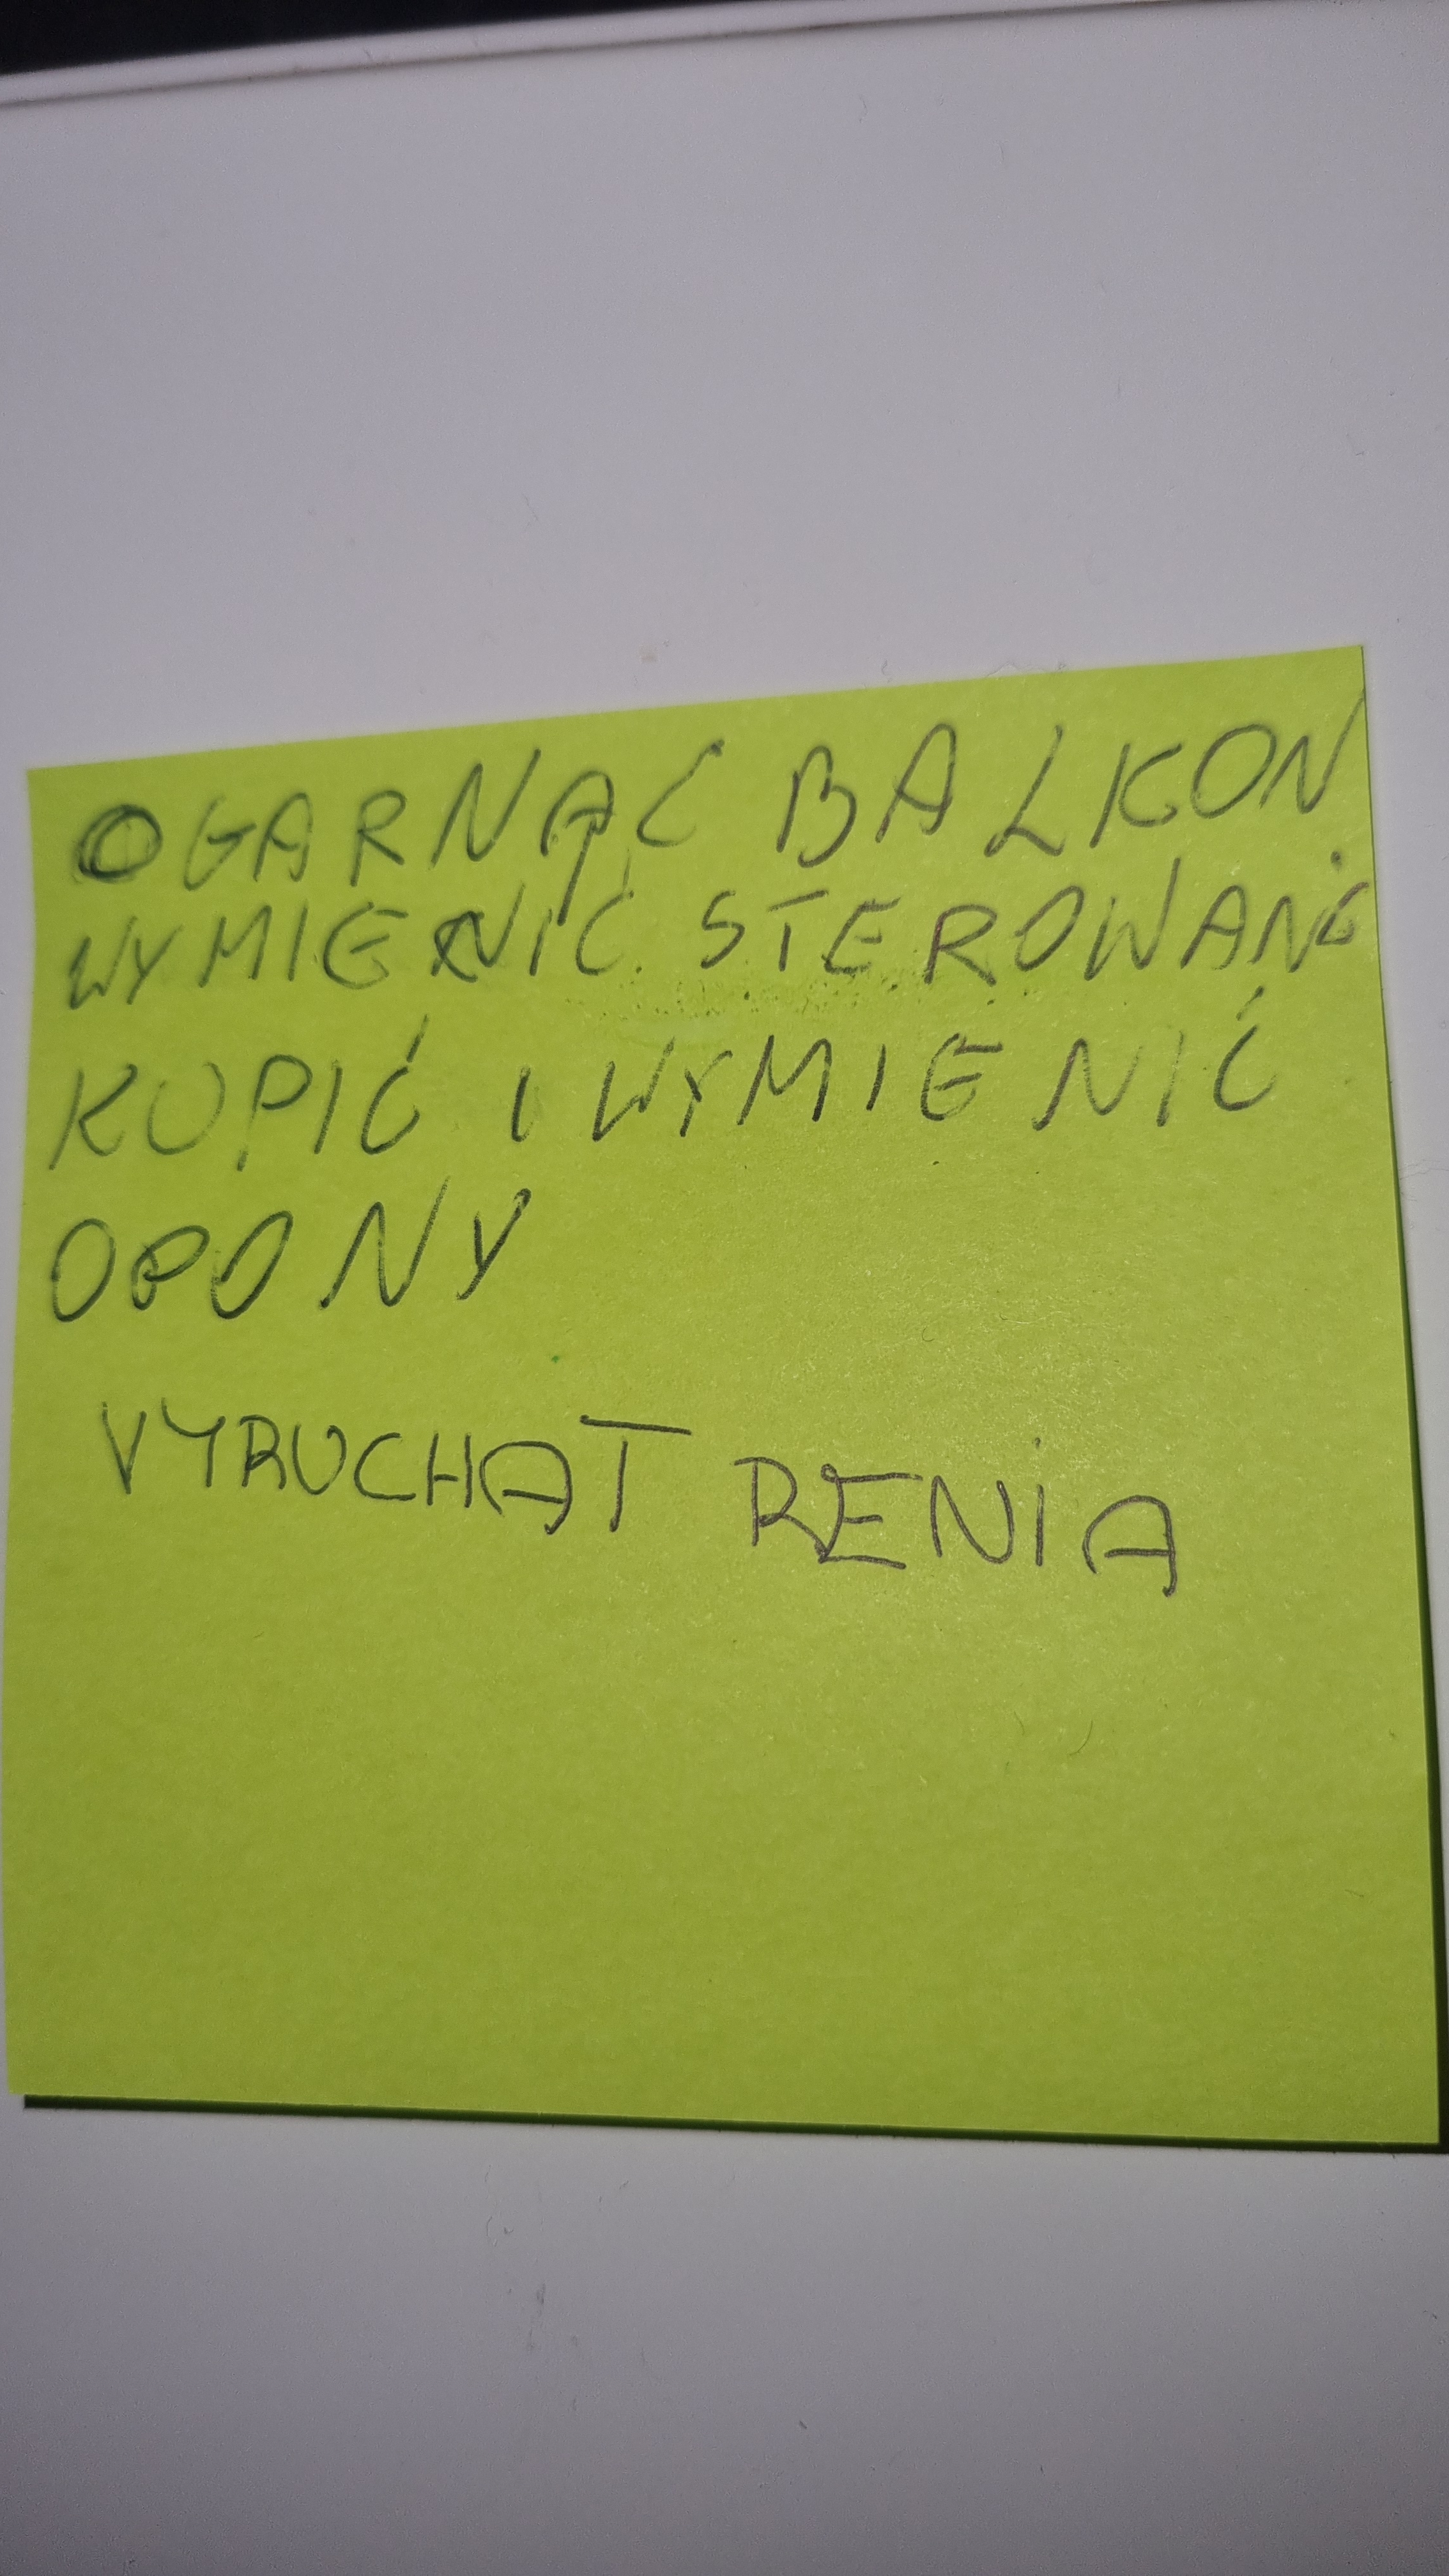 OGARNĄĆ BALKON
WYMIENIĆ STEROWANIE
KUPIĆ I WYMIENIĆ
OPONY
VYRUCHAT RENIA